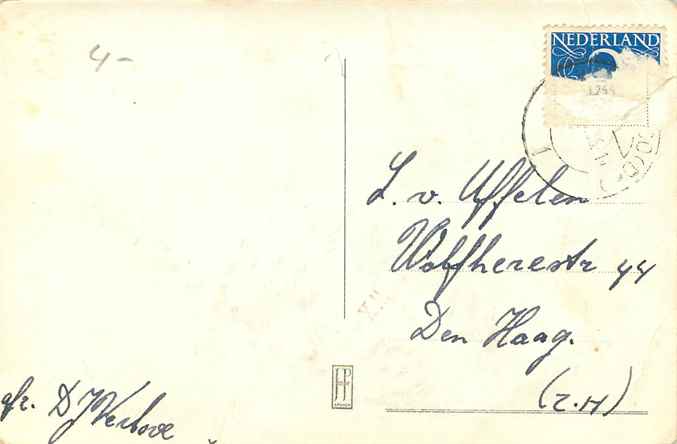 4-
NEDERLAND
L. v. Uffelen
Wolfherestr 44
Den Haag.
(Z.H)
afz. D J Verhove